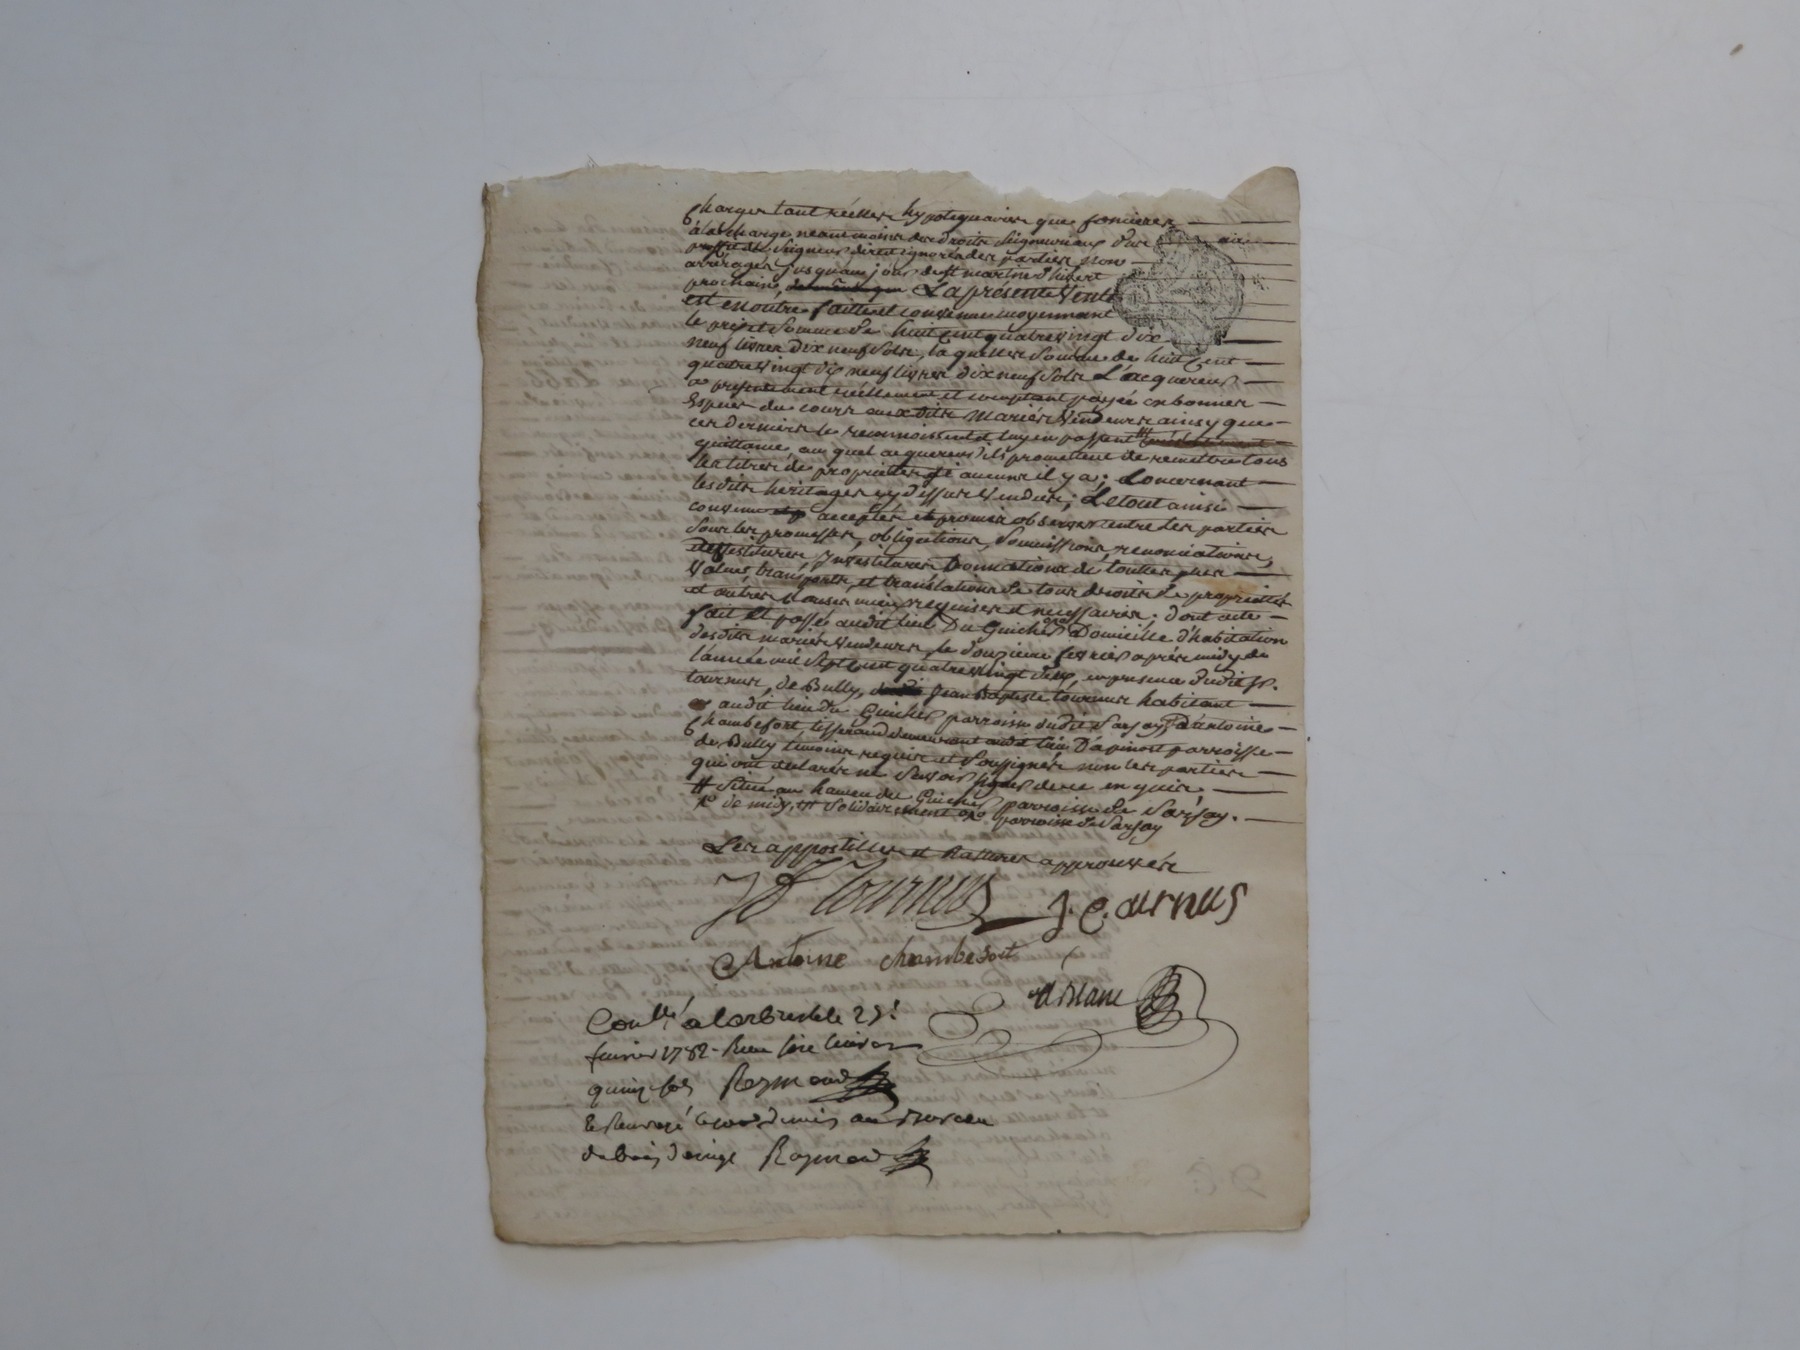 Charges tant réelles hypotequaires que foncieres
à la charge neantmoins des droits seigneuriaux d'une
seigneur direct ignoré des parties, non
arréragés jusquau jour de st martin d'hivert
prochain, La présente Vente
est en outre faitte et convenue moyennant
le prix et somme de huit cent quatre vingt dix
neuf livres dix neuf sols, la quelle somme de huit cent
quatre vingt dix neuf livres dix neuf sols L'acquereur
a presentement réellement et comptant payée en bonnes
Especes du cours aux dits Mariés Vendeurs ainsy que
ces derniers le reconnoissent et luy en passent
quittance, au quel acquereur ils promettent de remettre tous
les titres de proprietté si aucuns il y a; Concernant
lesdits heritages cy dessus Vendus; Le tout ainsi
convenu accepté et promis observer entre les parties
sous les promesses, obligations, soumissions, renonciations,
devestitures, Investitures Donnations de touttes plus
Values, transports, et translations de tous droits de propriettés
et autres clauses mieux requises et necessaires; dont acte
fait Et passé audit lieu Du Guichet Domicille d'habitation
desdits mariés Vendeurs, le douzieme fevrier après midy de
l'année mil sept cent quatre vingt deux, en presence dudit sr.
tournus, de Bully, Jean Baptiste tournus habitant
audit lieu du Guichet parroisse dudit Sarsay, & d'antoine
Chambefort, tisserand demeurant audit lieu D'apinost parroisse
de Bully temoins requis et soussignés non les parties
qui ont declarés ne savoir signer de ce enquis
# Situé au hameau du Guichet parroisse de Sarsay.
de midy, # Solidairement parroisse de Sarsay
Les appostilles et Ratures approuvés
JB Tournus J. C. ournus
Antoine chambefort
Conllé a larbresle le 25
fevrier 1782. Reçu livres
quinze sols Raymond
& Renvoyé
Raymond